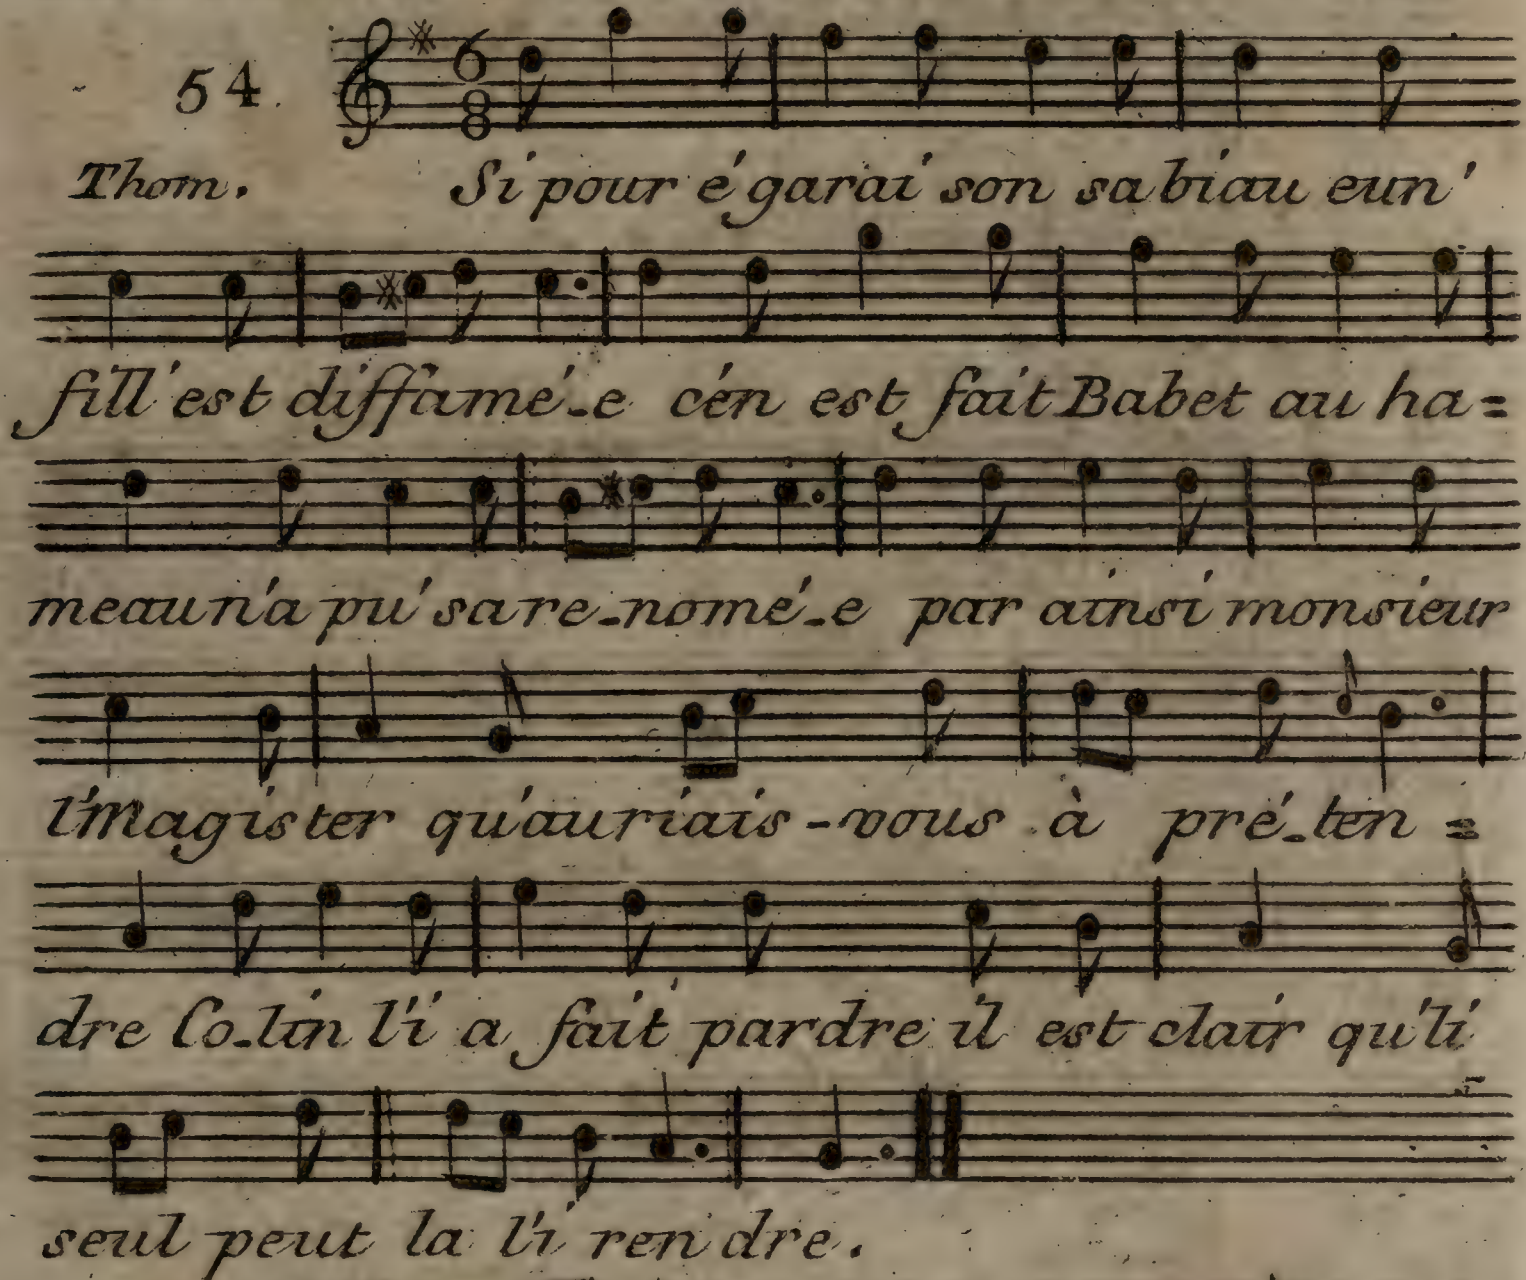 54.
6
8
Thom. Si pour é garai son sa biau eun'
fill' est diffamé-e c'en est fait Babet au ha=
meau n'a pu' sa re-nomé-e par ainsi monsieur
l'Magister qu'auriais-vous à pré-ten=
dre Co-lin l'i a fait pardre il est clair qu'li
seul peut la l'i ren dre.